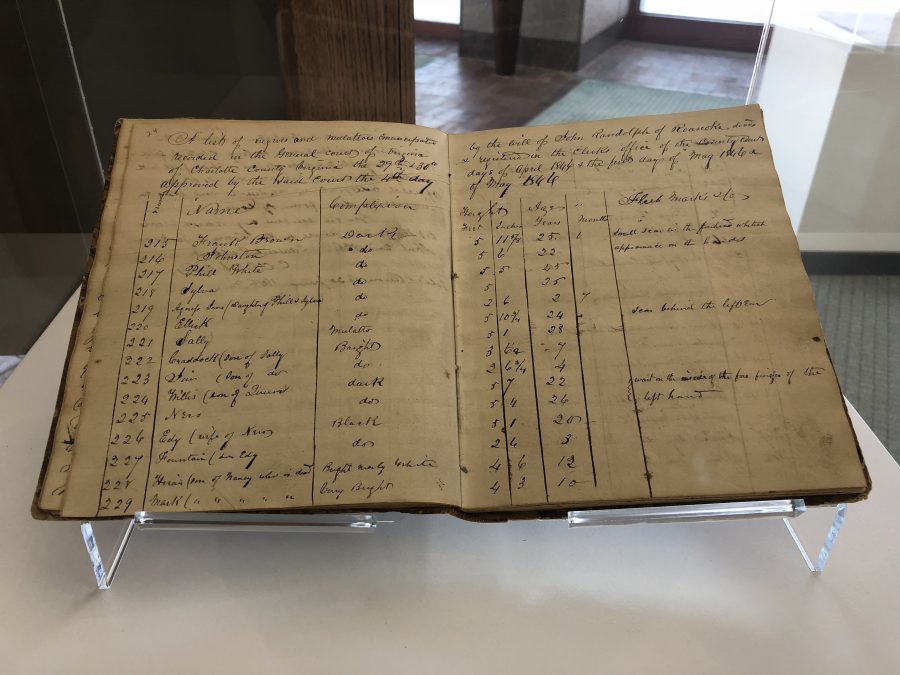 24
A list of negroes and mulattoes emancipated
recorded in the General court of Virginia
of Charlotte County Virginia the 29th & 30th
approved by the said Court the 4th day
Name Complexion
215 Frank Brown Dark
216 Johnston do
217 Phill White do
218 Sylva do
219 Agness Jane (daughter of Phill & Sylva do
220 Ellick do
221 Sally Mulatto
222 Craddock (son of Sally Bright
223 (son of do do
224 Willis (son of dark
225 Nero do
226 Edy (wife of Nero Black
227 Fountain (son Edy do
228 (son of Nancy who is dead Bright nearly White
229 Mark ( " " " " " Very Bright
by the will of John Randolph of Roanoke
& registered in the Clerks office of the County Court
days of April 1846 & the first days of May 1846 &
of May 1846
Height Age " Flesh Marks &c
Feet Inches Years Months "
5 11 3/4 25 1 Small scar in the forehead whitish
appearance on the
5 6 22
5 5 45
5 25
2 6 2 7
5 10 3/4 24 scar behind the left Ear
5 1 28
3 6 1/2 7
2 6 3/4 4
5 7 22 wart on the inside of the fore finger of the
left hand
5 4 26
5 1 20
2 6 3
4 6 12
4 3 10